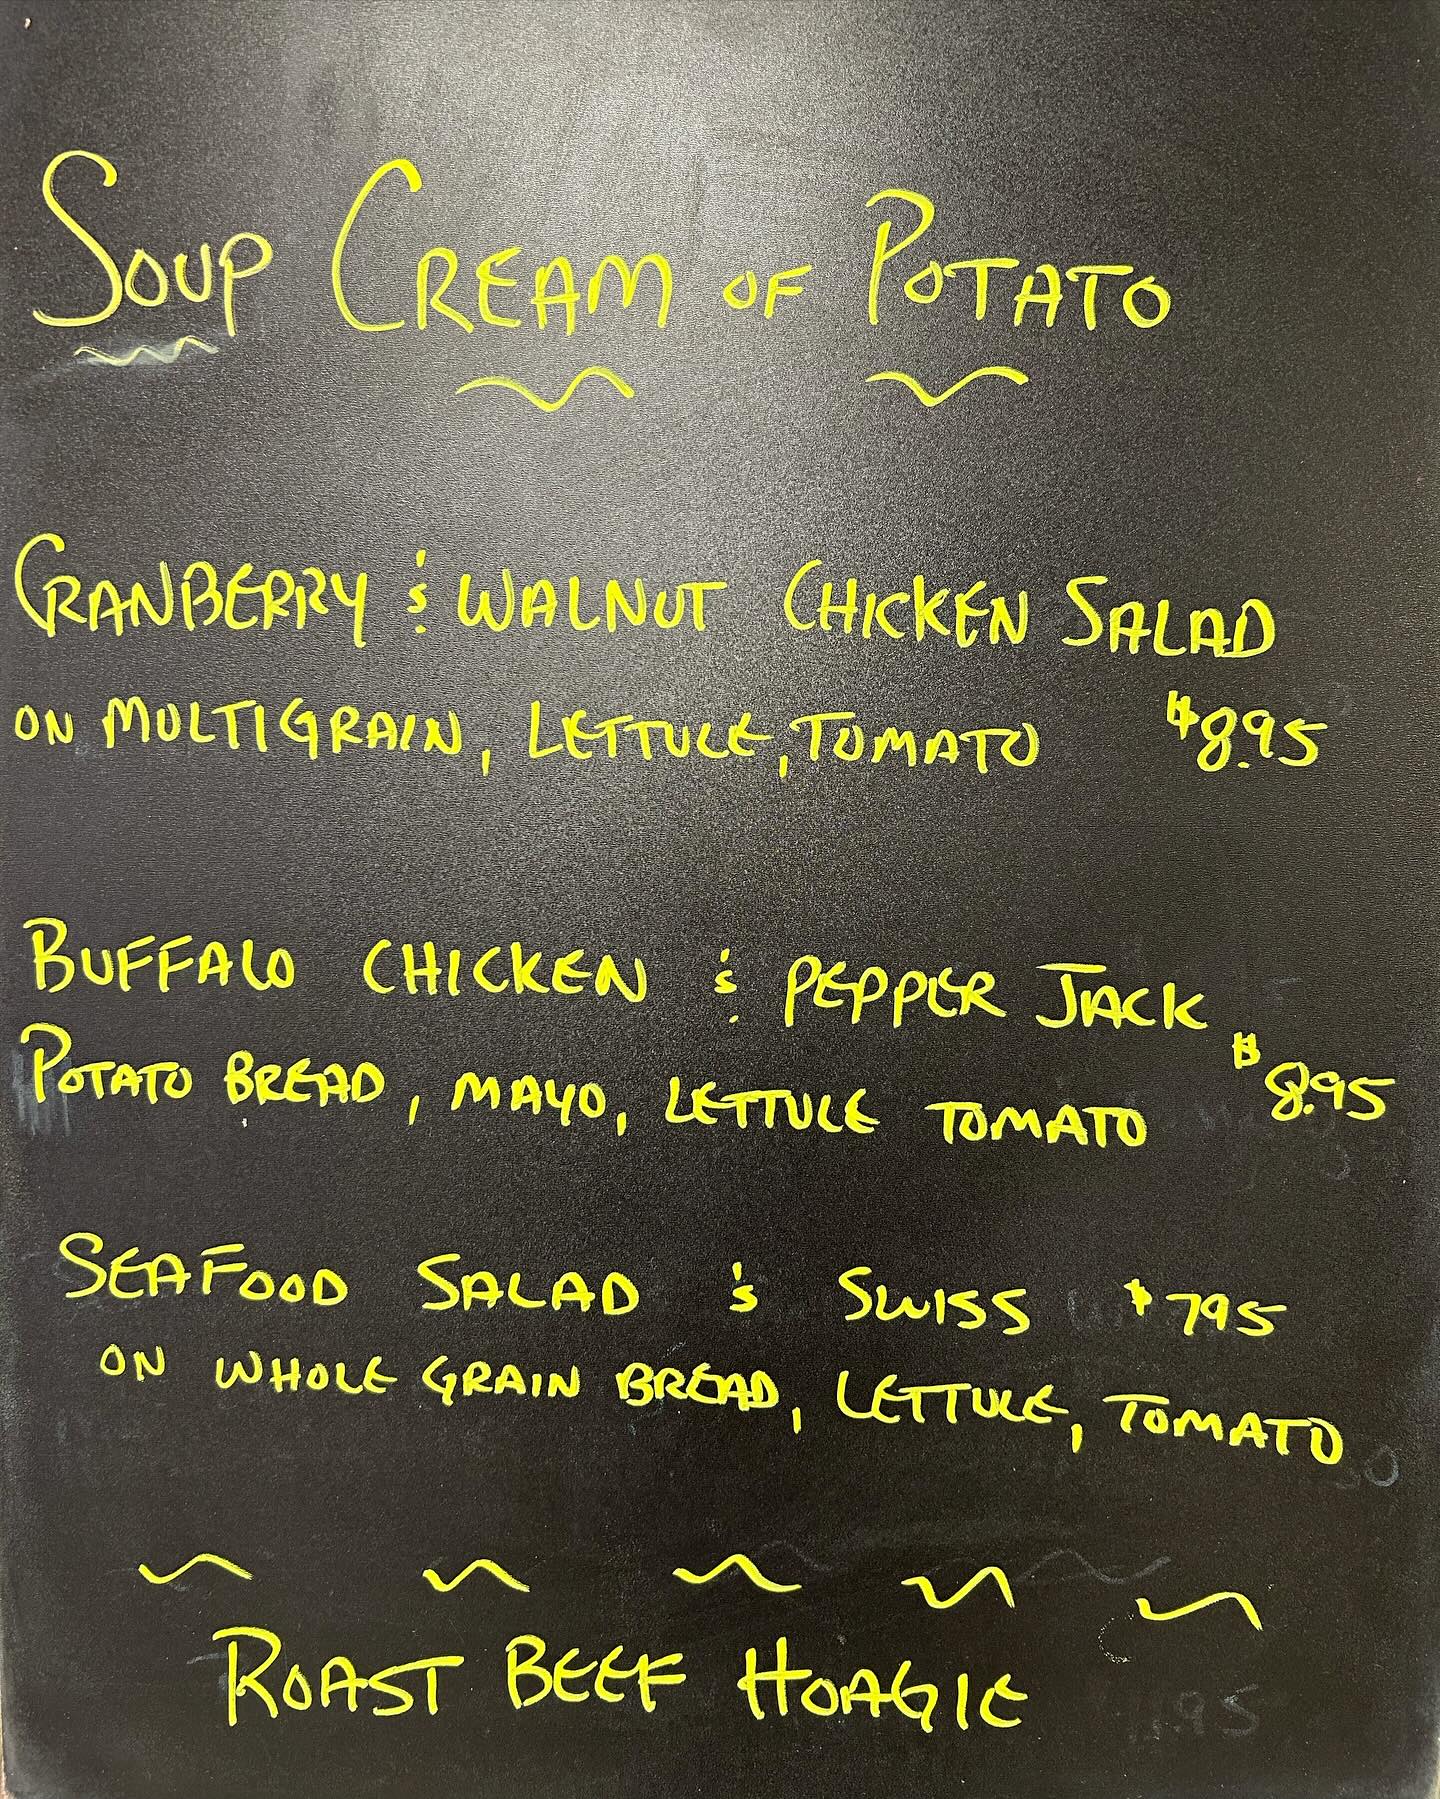 SOUP CREAM OF POTATO
CRANBERRY & WALNUT CHICKEN SALAD
ON MULTIGRAIN, LETTUCE, TOMATO $8.95
BUFFALO CHICKEN & PEPPER JACK
POTATO BREAD, MAYO, LETTUCE TOMATO $8.95
SEAFOOD SALAD & SWISS $795
ON WHOLE GRAIN BREAD, LETTUCE, TOMATO
ROAST BEEF HOAGIE